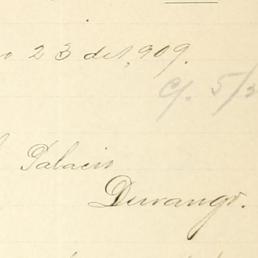 23 de 1,909.
C/. 5/3
Palacio
Durango.